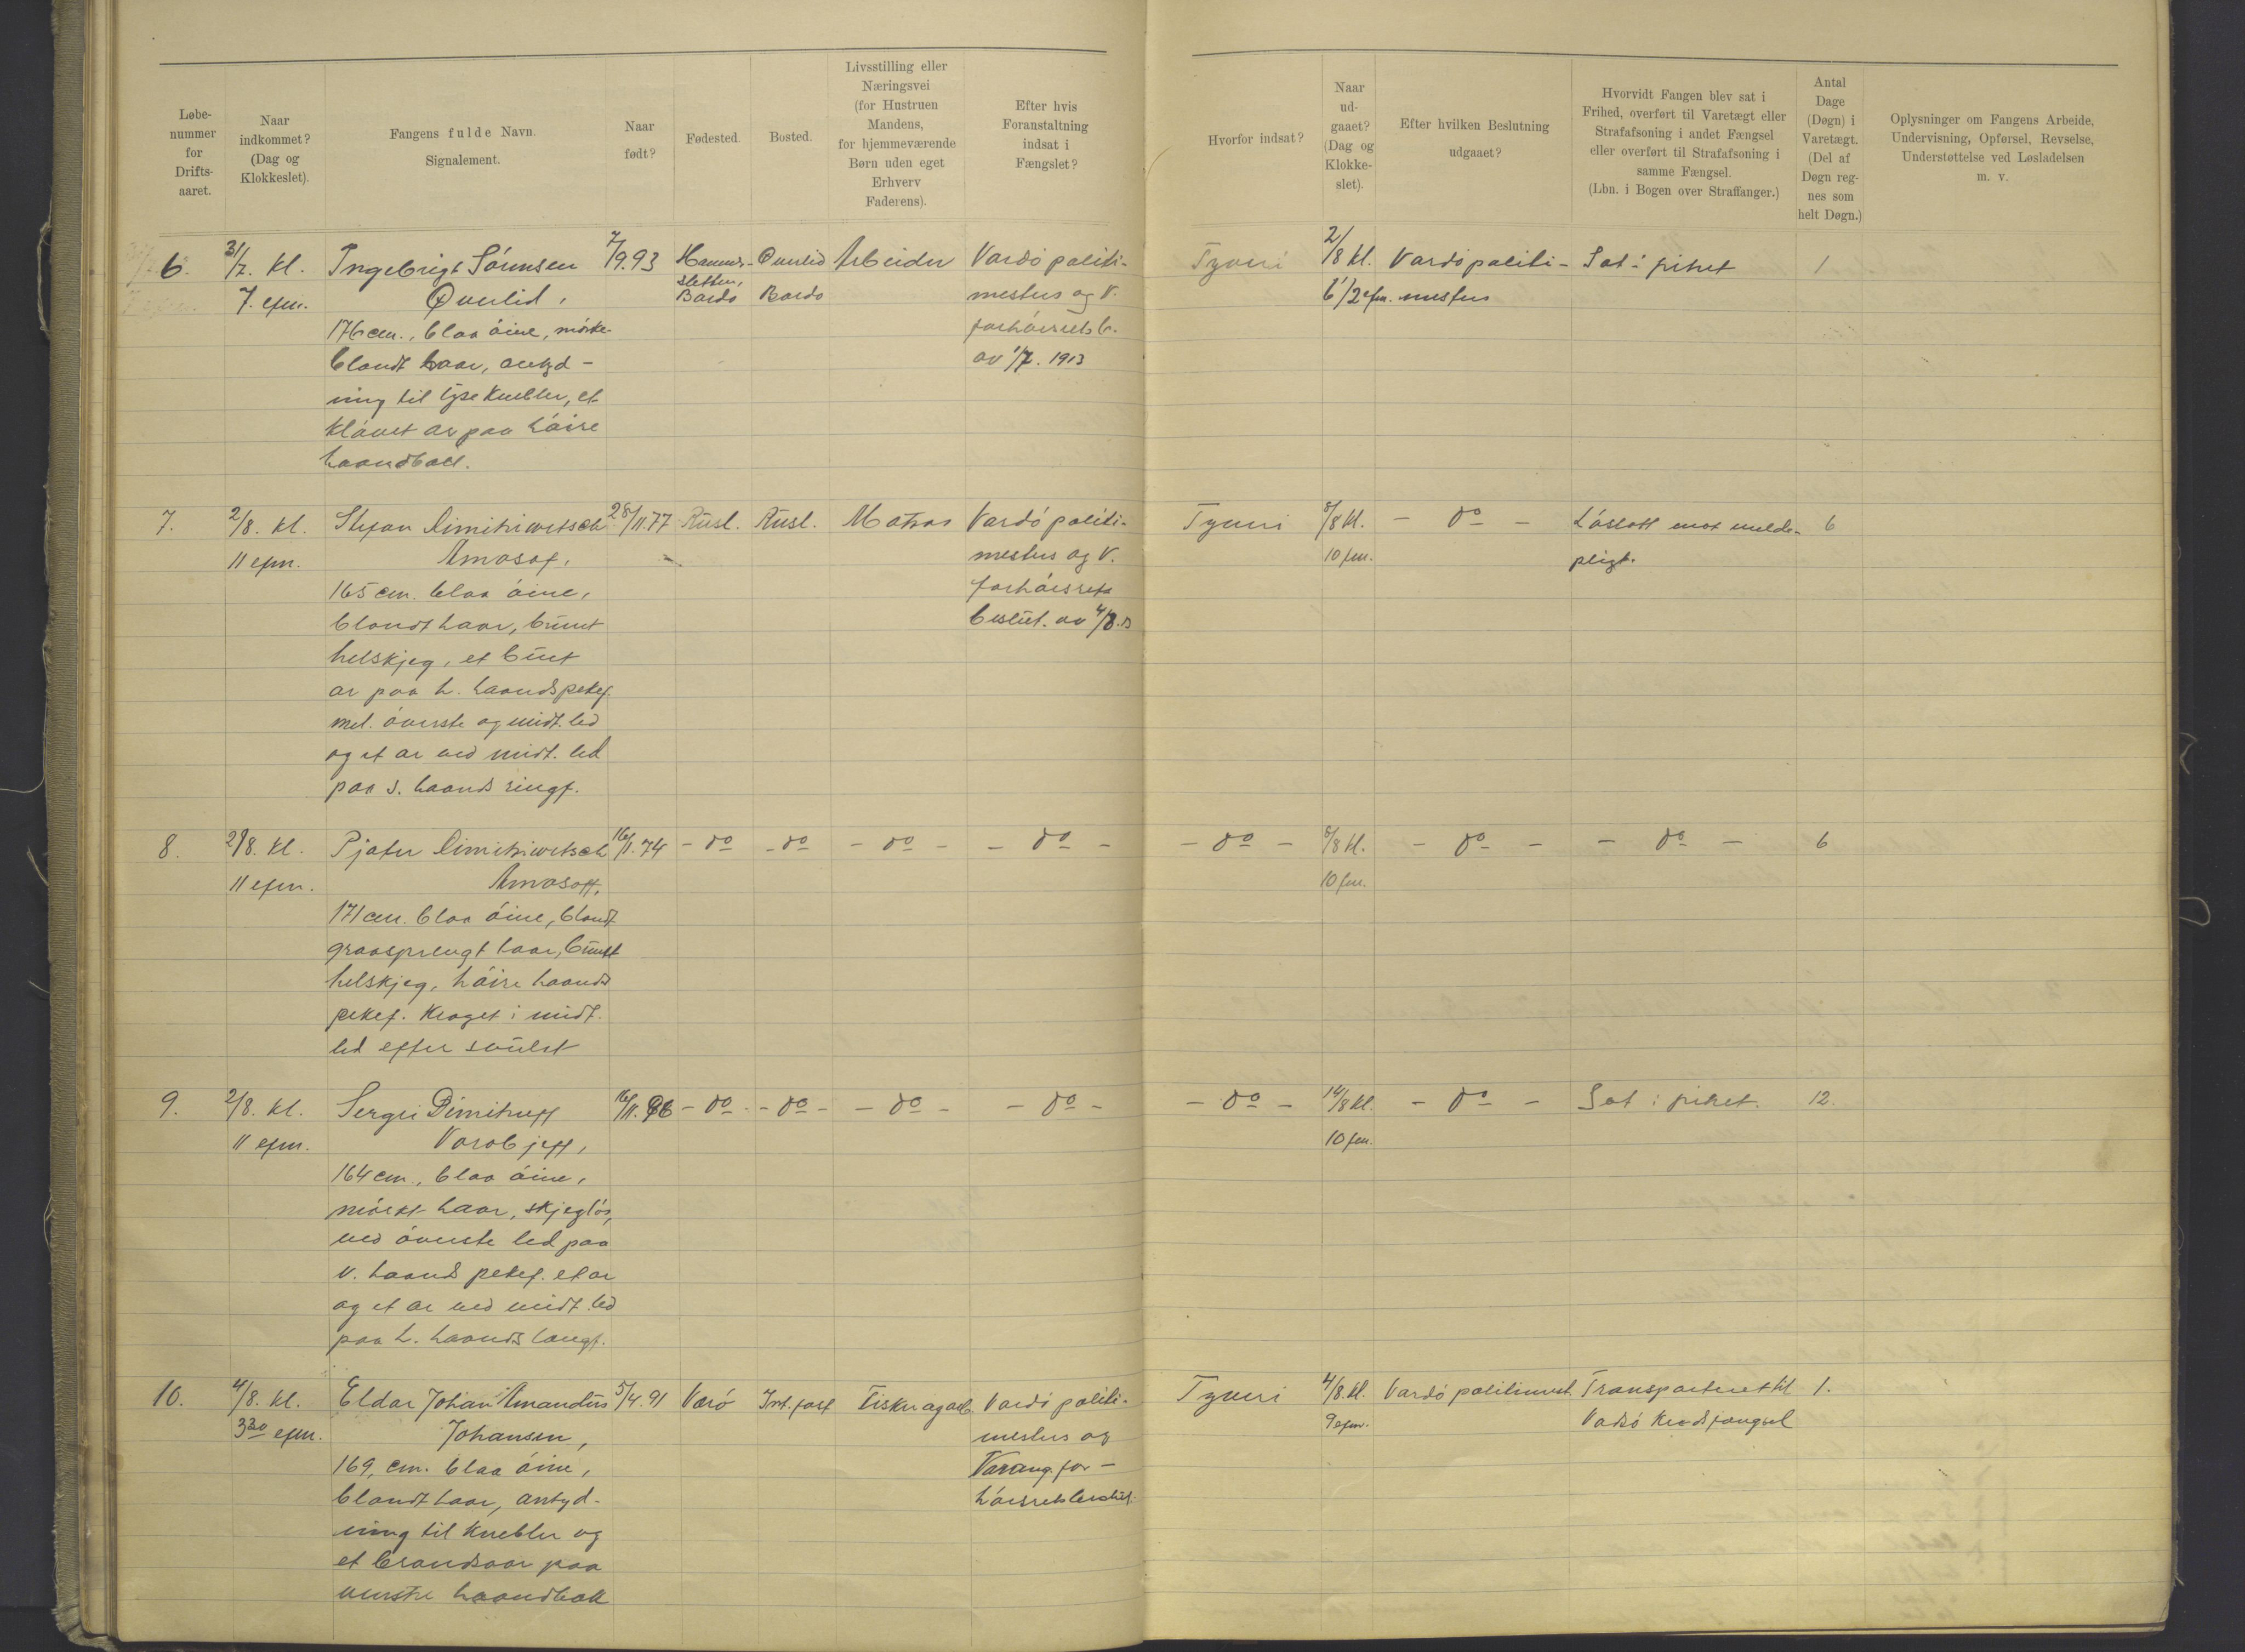 Løbe-
nummer
for
Drifts-
aaret.
Naar
indkommet?
(Dag og
Klokkeslet).
Fangens fulde Navn.
Signalement.
Naar
født?
Fødested.
Bosted.
Livsstilling eller
Næringsvei
(for Hustruen
Mandens,
for hjemmeværende
Børn uden eget
Erhverv
Faderens).
Efter hvis
Foranstaltning
indsat i
Fængslet?
Hvorfor indsat?
Naar
ud-
gaaet?
(Dag og
Klokke-
slet).
Efter hvilken Beslutning
udgaaet?
Hvorvidt Fangen blev sat i
Frihed, overført til Varetægt eller
Strafafsoning i andet Fængsel
eller overført til Strafafsoning i
samme Fængsel.
(Lbn. i Bogen over Straffanger.)
Antal
Dage
(Døgn) i
Varetægt.
(Del af
Døgn reg-
nes som
helt Døgn.)
Oplysninger om Fangens Arbeide,
Undervisning, Opførsel, Revselse,
Understøttelse ved Løsladelsen
m. v.
6.
31/7. kl.
7. efm.
Ingebrigt Sörensen
Øverlid,
176 cm., blaa öine, mörke-
blondt haar, antyd-
ning til lyse knebler, et
klövet ar paa höire
haandbak.
7/9.93
sletten,
Bardo
Øverlid
Bardo
Arbeider
Vardö politi-
mester og V.
forhörsretsb.
av 1/7. 1913
Tyveri
2/8 kl.
6 1/2 efm.
Vardö politi-
mester
Sat i frihet
1
7.
2/8. kl.
11 efm.
Stefan Dimitriwitsch
Amosof,
165 cm. blaa öine,
blondt haar, brunt
helskjeg, et buet
ar paa h. haands pekef.
mel. överste og midt. led
og et ar ved midt. led
paa s. haands ringf.
28/11.77
Rusl.
Rusl.
Matros
Vardö politi-
mester og V.
forhörsrets
beslut. av 4/8.13
Tyveri
8/8 kl.
10 fm.
- do -
Löslatt mot melde-
pligt.
6
8.
2/8. kl.
11 efm.
Pjoter Dimitriwitsch
Amosoff,
171 cm. blaa öine, blondt
graasprengt haar, brunt
helskjeg, höire haands
pekef. kroget i midt.
led efter svulst
16/11.74
- do
- do
- do -
- do -
- do -
8/8 kl.
10 fm.
- do -
- do -
6
9.
2/8. kl.
11 efm.
Sergei Dimitrieff
Vorobjeff,
164 cm., blaa öine,
mörkt haar, skjeglös,
ved överste led paa
v. haands pekef. et ar
og et ar ved midt. led
paa h. haands langf.
- do -
- do -
- do -
- do -
- do -
14/8 kl.
10 fm.
- do -
Sat i frihet.
12.
10.
4/8. kl.
3 30 efm.
Eldar Johan Amandus
Johansen,
169, cm. blaa öine,
blondt haar, antyd-
ning til knebler og
et brandsaar paa
venstre haandbak
5/4.91
Værö
Int. fast
Fisker og arb.
Vardö politi-
mester og
Varang. for-
hörsretsbeslut.
Tyveri
4/8. kl.
9 efm.
Vardö politimest.
Transporteret til
Vadsö kredsfængsel
1.